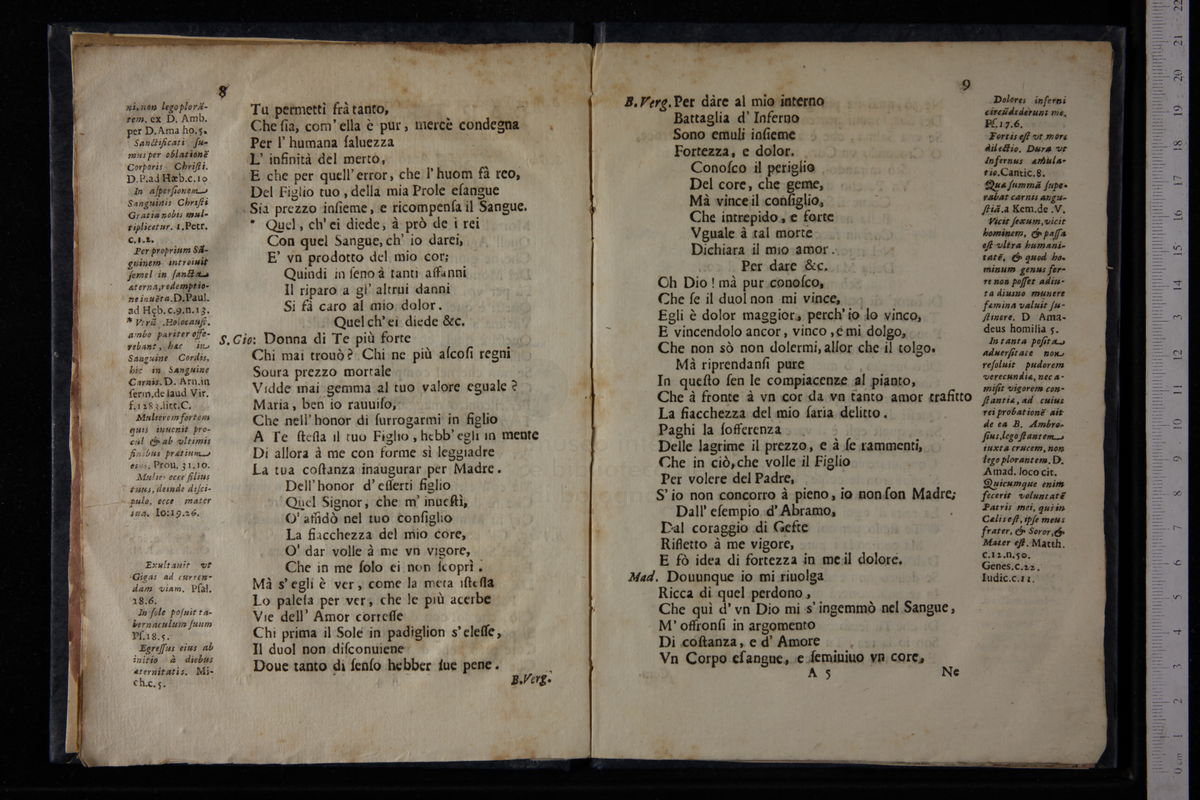 8
ni, non lego plorã-
rem. ex D. Amb.
per D. Ama ho. 5.
Sanctificati su-
mus per oblationẽ
Corporis Christi.
D. P. ad Hæb. c. 10
In aspersionem
Sanguinis Christi
Gratia nobis mul-
tiplicetur. 1. Petr.
c. 1. 2.
Per proprium Sã-
guinem introiuit
semel in sancta
æterna, redemptio-
ne inuẽta. D. Paul.
ad Hęb. c. 9. n. 13.
* Vnũ Holocaust.
ambo pariter offe-
rebant, hæc in
Sanguine Cordis,
hic in Sanguine
Carnis. D. Arn. in
serm. de laud Vir.
f. 1283. litt. C.
Mulierem fortem
quis inuenit pro-
cul & ab vltimis
finibus prætium
eius. Prou. 31. 10.
Mulier ecce filius
tuus, deinde disci-
pulo. ecce mater
tua. Io: 19. 26.
Exultauit vt
Gigas ad curren-
dam viam. Psal.
18. 6.
In sole posuit ta-
bernaculum suum
Ps. 18. 5.
Egressus eius ab
initio à diebus
æternitatis. Mi-
ch. c. 5.
Tu permetti frà tanto,
Che sia, com' ella è pur, mercè condegna
Per l' humana saluezza
L' infinità del merto,
E che per quell' error, che l' huom fà reo,
Del Figlio tuo, della mia Prole esangue
Sia prezzo insieme, e ricompensa il Sangue.
* Quel, ch' ei diede, à prò de i rei
Con quel Sangue, ch' io darei,
E' vn prodotto del mio cor;
Quindi in seno à tanti affanni
Il riparo a gl' altrui danni
Si fà caro al mio dolor.
Quel ch' ei diede &c.
S. Gio: Donna di Te più forte
Chi mai trouò? Chi ne più ascosi regni
Soura prezzo mortale
Vidde mai gemma al tuo valore eguale?
Maria, ben io rauuiso,
Che nell' honor di surrogarmi in figlio
A Te stessa il tuo Figlio, hebb' egli in mente
Di allora à me con forme sì leggiadre
La tua costanza inaugurar per Madre.
Dell' honor d' esserti figlio
Quel Signor, che m' inuestì,
O' affidò nel tuo consiglio
La fiacchezza del mio core,
O' dar volle à me vn vigore,
Che in me solo ei non scoprì.
Mà s' egli è ver, come la meta istessa
Lo palesa per ver, che le più acerbe
Vie dell' Amor corresse
Chi prima il Sole in padiglion s' elesse,
Il duol non disconuiene
Doue tanto di senso hebber sue pene.
B. Verg.
9
B. Verg. Per dare al mio interno
Battaglia d' Inferno
Sono emuli insieme
Fortezza, e dolor.
Conosco il periglio
Del core, che geme,
Mà vince il consiglio,
Che intrepido, e forte
Vguale à tal morte
Dichiara il mio amor.
Per dare &c.
Oh Dio! mà pur conosco,
Che se il duol non mi vince,
Egli è dolor maggior, perch' io lo vinco,
E vincendolo ancor, vinco, e mi dolgo,
Che non sò non dolermi, allor che il tolgo.
Mà riprendansi pure
In questo sen le compiacenze al pianto,
Che à fronte à vn cor da vn tanto amor trafitto
La fiacchezza del mio saria delitto.
Paghi la sofferenza
Delle lagrime il prezzo, e à se rammenti,
Che in ciò, che volle il Figlio
Per volere del Padre,
S' io non concorro à pieno, io non son Madre;
Dall' esempio d' Abramo,
Dal coraggio di Gefte
Rifletto à me vigore,
E fò idea di fortezza in me il dolore.
Mad. Douunque io mi riuolga
Ricca di quel perdono,
Che quì d' vn Dio mi s' ingemmò nel Sangue,
M' offronsi in argomento
Di costanza, e d' Amore
Vn Corpo esangue, e semiuiuo vn core,
A 5
Ne
Dolores inferni
circũdederunt me.
Ps. 17. 6.
Fortis est vt mors
dilectio. Dura vt
Infernus æmula-
tio. Cantic. 8.
Qua summã supe-
rabat carnis angu-
stiã. a Kem. de . V.
Vicit sexum, vicit
hominem, & passa
est vltra humani-
tatẽ, & quod ho-
minum genus fer-
re non posset adiu-
ta diuino munere
fæmina valuit su-
stinere. D Ama-
deus homilia 5.
In tanta posita
aduersitate non
resoluit pudorem
verecundiæ, nec a-
misit vigorem con-
stantiæ, ad cuius
rei probationẽ ait
de ea B. Ambro-
sius, lego stantem
iuxta crucem, non
lego plorantem. D.
Amad. loco cit.
Quicumque enim
fecerit voluntatẽ
Patris mei, qui in
Cælis est, ipse meus
frater, & Soror, &
Mater est. Matth.
c. 12. n. 50.
Genes. c. 22.
Iudic. c. 11.